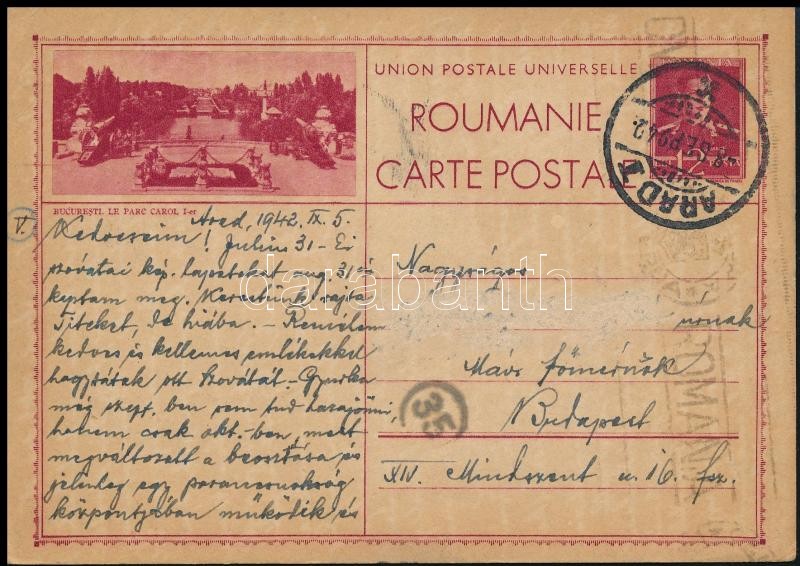 UNION POSTALE UNIVERSELLE
ROUMANIE
CARTE POSTALE
BUCUREȘTI. LE PARC CAROL I-er
ARAD 1
V.
Arad, 1942. IX. 5.
Kedveseim! Julius 31-Ei
szovátai kép. lapotokat aug. 31-én
kaptam meg. Kerestünk rajta
Titeket, de hiába. - Remélem
kedves és kellemes emlékekkel
hagytátok ott Szovátát. - Gyurka
még szept. ben sem tud hazajönni,
hanem csak okt.-ben, mert
megváltozott a beosztása és
jelenleg egy parancsnokság
központjában működik és
Nagyságos
úrnak
Máv. főmérnök
Budapest
XIV. Mindszent u. 16. fsz.
35
ROMANIA
darabanth